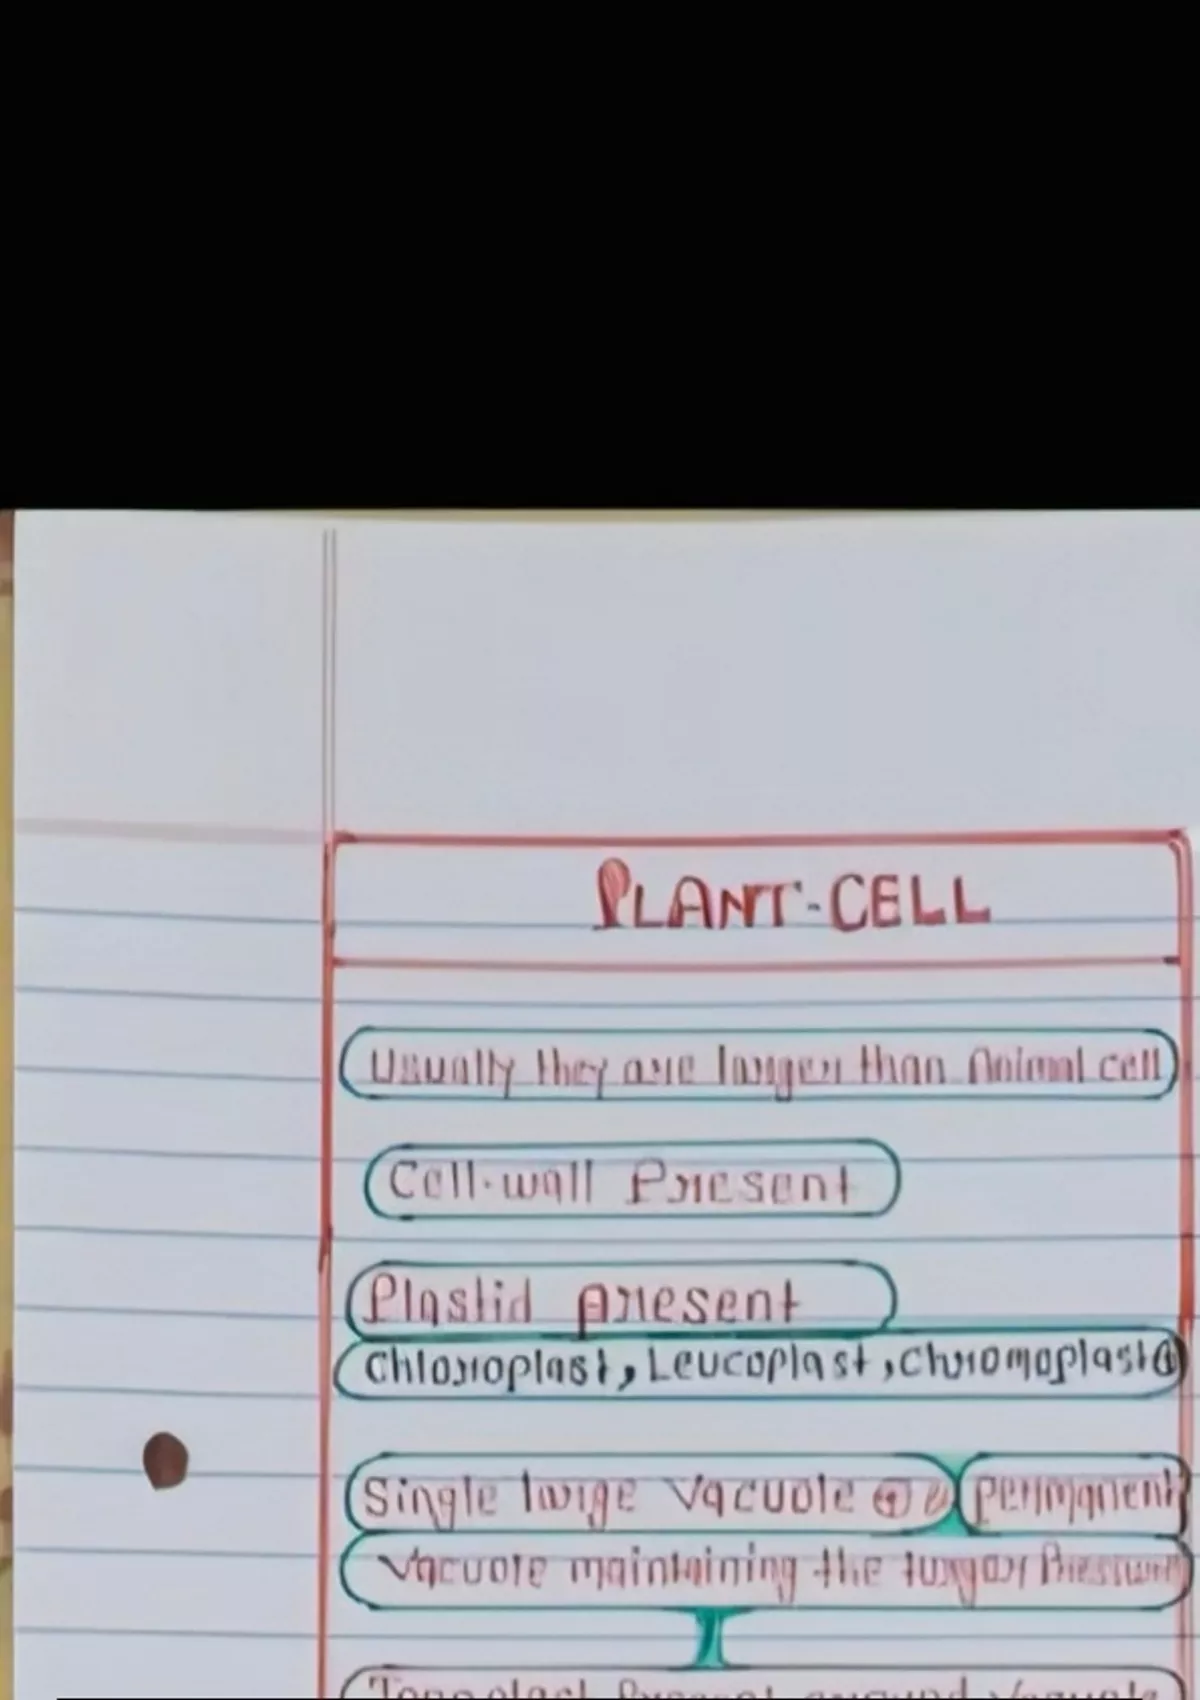 PLANT-CELL
Usually they are larger than Animal cell
Cell-wall Present
Plastid present
Chloroplast, Leucoplast, Chromoplast
Single large Vacuole permanent
Vacuole maintaining the turgor Pressure
Tonoplast Present around Vacuole